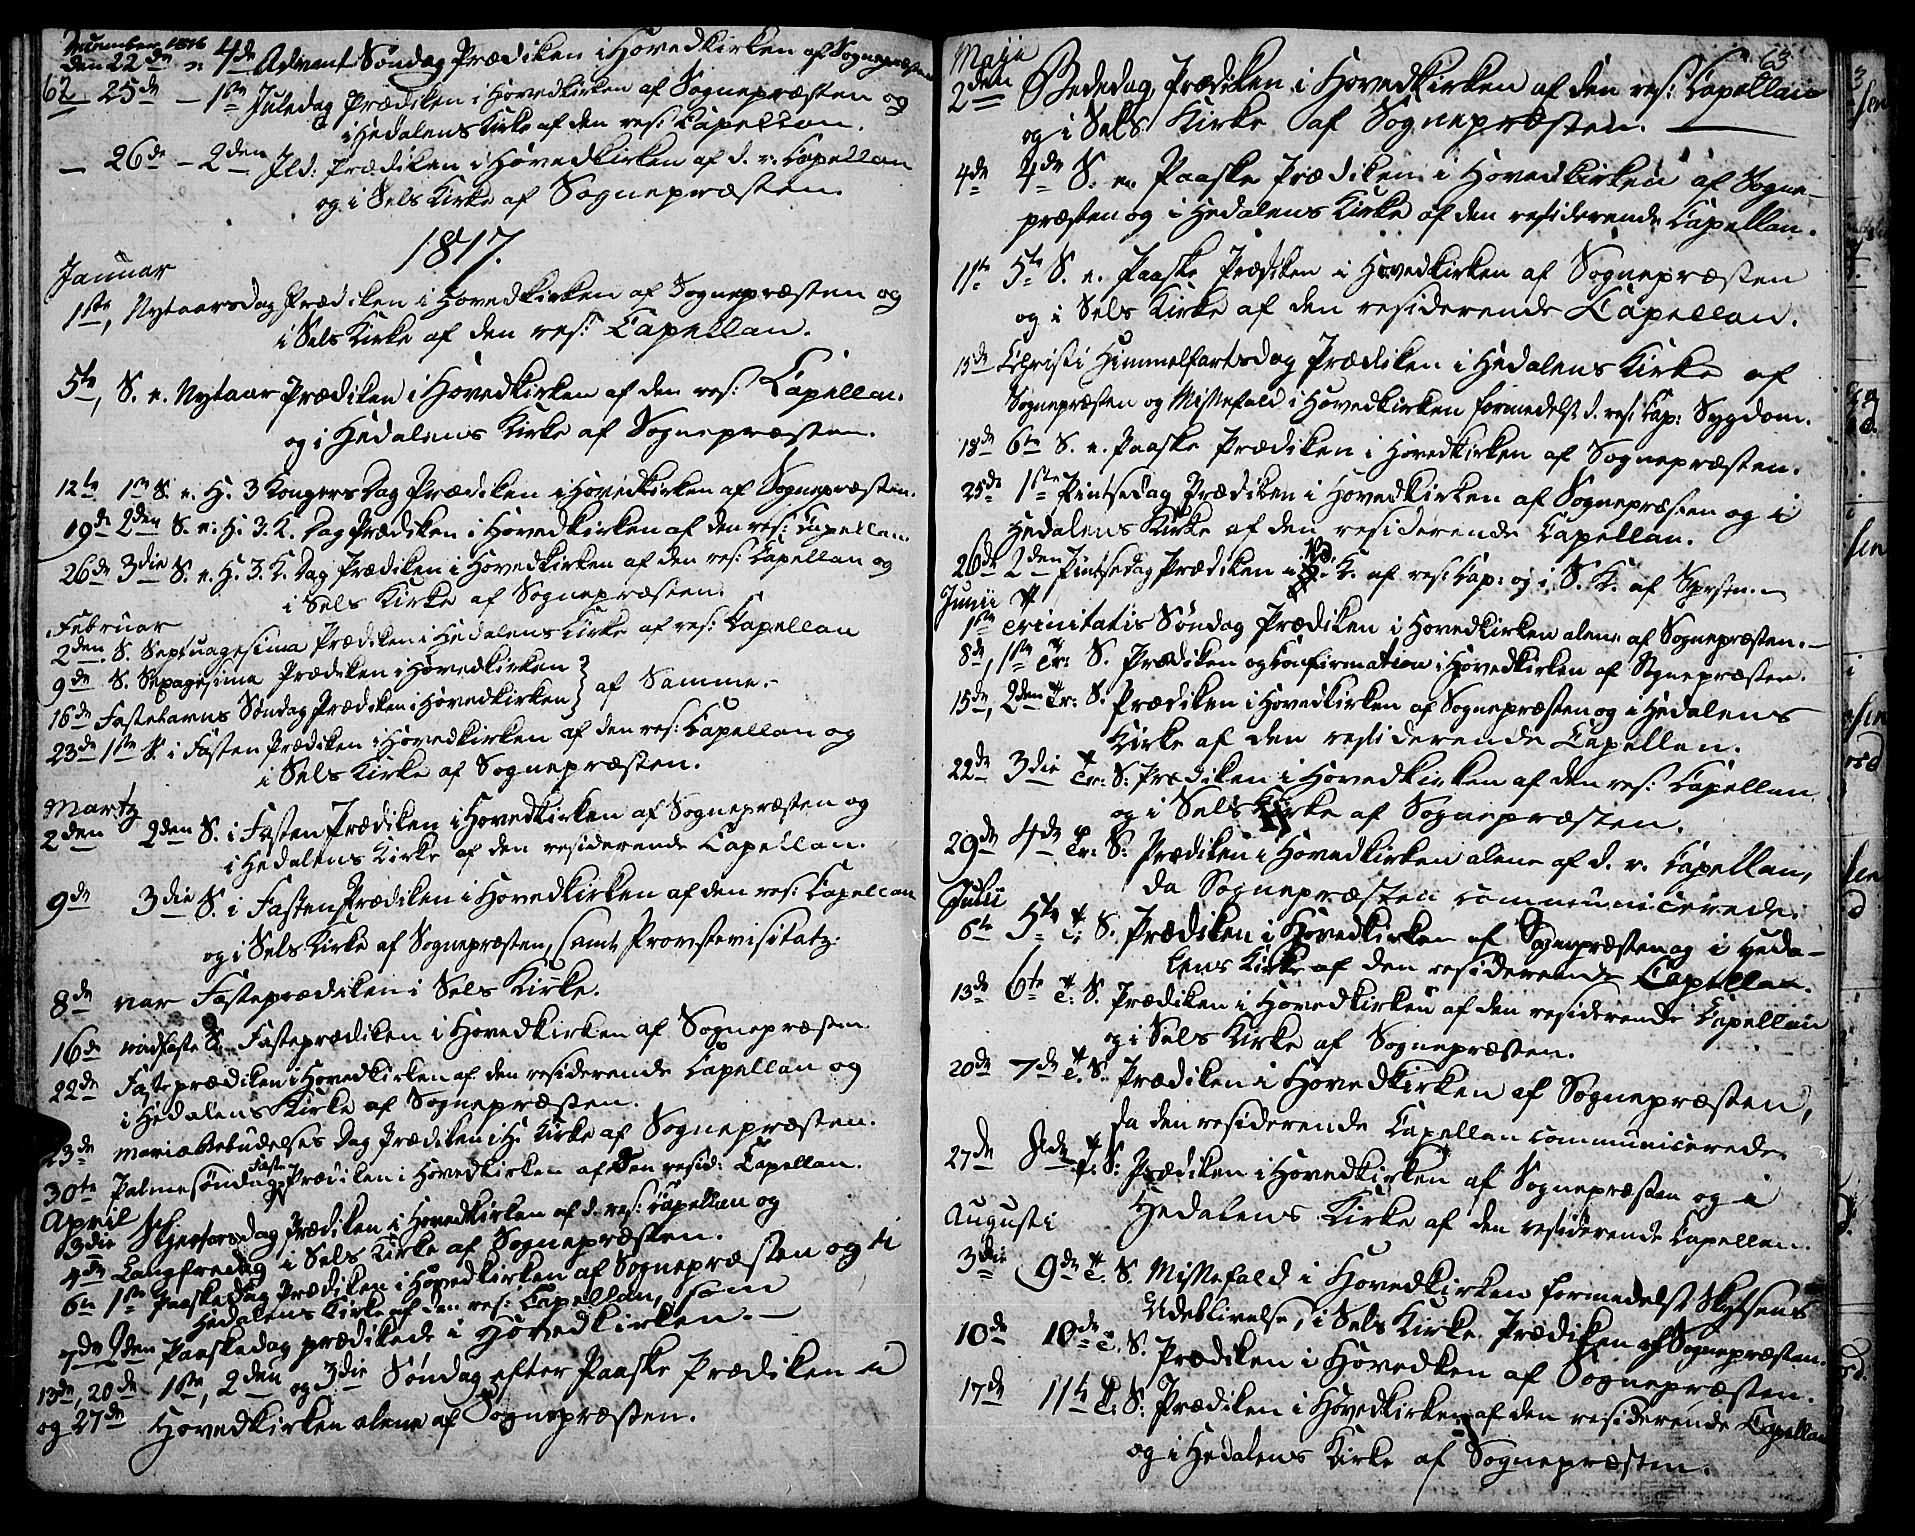 December 1816
den 22de 4de Advent Søndag Prædiken i Hovedkirken af Sognepræsten
62
25de – 1ste Juledag Prædiken i Hovedkirken af Sognepræsten og
i Hedalens Kirke af den res: Capellan.
– 26de – 2den Jld: Prædiken i Hovedkirken af d. r. Capellan
og i Sels Kirke af Sognepræsten.
1817.
Januar
1ste, Nytaarsdag Prædiken i Hovedkirken af Sognepræsten og
i Sels Kirke af den res: Capellan.
5te, S. e. Nytaar Prædiken i Hovedkirken af den res: Capellan
og i Hedalens Kirke af Sognepræsten.
12te 1ste S. e. H. 3 Kongers Dag Prædiken i Hovedkirken af Sognepræsten.
19de 2den S. e. H. 3. K. Dag Prædiken i Hovedkirken af den res: Capellan
26de 3die S. e. H. 3. K. Dag Prædiken i Hovedkirken af den res: Capellan og
i Sels Kirke af Sognepræsten.
Februar
2den S. Septuagesima Prædiken i Hedalens Kirke af res: Capellan
9de S. Sexagesima Prædiken i Hovedkirken
16de Fastelavns Søndag Prædiken i Hovedkirken } af Samme.
23de 1ste S. i Fasten Prædiken i Hovedkirken af den res: Capellan og
i Sels Kirke af Sognepræsten.
Martz
2den 2den S. i Fasten Prædiken i Hovedkirken af Sognepræsten og
i Hedalens Kirke af den residerende Capellan.
9de 3die S. i Fasten Prædiken i Hovedkirken af den res: Capellan
og i Sels Kirke af Sognepræsten, samt Provstevisitatz.
8de var Fasteprædiken i Sels Kirke.
16de midfaste S. Fasteprædiken i Hovedkirken af Sognepræsten
22de Fasteprædiken i Hovedkirken af den residerende Capellan og
i Hedalens Kirke af Sognepræsten.
23de Mariæ Bebudelses Dag Prædiken i H. Kirke af Sognepræsten.
30te Palmesøndag Faste Prædiken i Hovedkirken af den resid: Capellan.
April
3die Skjertorsdag Prædiken i Hovedkirken af d. res: Capellan og
4de Langfredag i Sels Kirke af Sognepræsten.
6te 1ste Paaskedag Prædiken i Hovedkirken af Sognepræsten og i
Hedalens Kirke af den res: Capellan, som
7de 2den Paaskedag prædikede i Hovedkirken. –
13de, 20de 1ste, 2den og 3die Søndag efter Paaske Prædiken i
og 27de Hovedkirken alene af Sognepræsten.
63
Maji
2den Bededag, Prædiken i Hovedkirken af den res: Capellan
og i Sels Kirke af Sognepræsten.
4de 4de S. e. Paaske Prædiken i Hovedkirken af Sogne-
præsten og i Hedalens Kirke af den residerende Capellan.
11te 5te S. e. Paaske Prædiken i Hovedkirken af Sognepræsten
og i Sels Kirke af den residerende Capellan.
15de Christi Himmelfartsdag Prædiken i Hedalens Kirke af
Sognepræsten og Missefald i Hovedkirken formedelst d. res: Cap: Sygdom.
18de 6te S. e. Paaske Prædiken i Hovedkirken af Sognepræsten.
25de 1ste Pintsedag Prædiken i Hovedkirken af Sognepræsten og i
Hedalens Kirke af den residerende Capellan.
26de 2den Pintsedag Prædiken i K. af res: Cap: og i S. K. af Sgprsten.
Junii
1ste Trinitatis Søndag Prædiken i Hovedkirken alene af Sognepræsten. –
8de, 1ste Tr: S. Prædiken og Confirmation i Hovedkirken af Sgnepræsten.
15de, 2den Tr: S. Prædiken i Hovedkirken af Sognepræsten og i Hedalens
Kirke af den residerende Capellan.
22de 3die Tr: S: Prædiken i Hovedkirken af den res: Capellan
og i Sels Kirke af Sognepræsten.
29de 4de Tr: S: Prædiken i Hovedkirken alene af d. r. Capellan,
da Sognepræsten communicerede.
Julii
6te 5te T: S. Prædiken i Hovedkirken af Sognepræsten og i Heda-
lens Kirke af den residerende Capellan.
13de 6te T: S. Prædiken i Hovedkirken af den residerende Capellan
og i Sels Kirke af Sognepræsten.
20de 7de T. S. Prædiken i Hovedkirken af Sognepræsten,
da den residerende Capellan communicerede.
27de 8de T: S: Prædiken i Hovedkirken af Sognepræsten og i
Hedalens Kirke af den residerende Capellan.
Augusti
3die 9de T: S. Missefald i Hovedkirken formedelst Skydsens
Udeblivelse, i Sels Kirke Prædiken af Sognepræsten.
10de 10de T. S. Prædiken i Hovedken af Sognepræsten.
17de 11te T: S: Prædiken i Hovedkirken af den residerende Capellan
og i Hedalens Kirke af Sognepræsten.